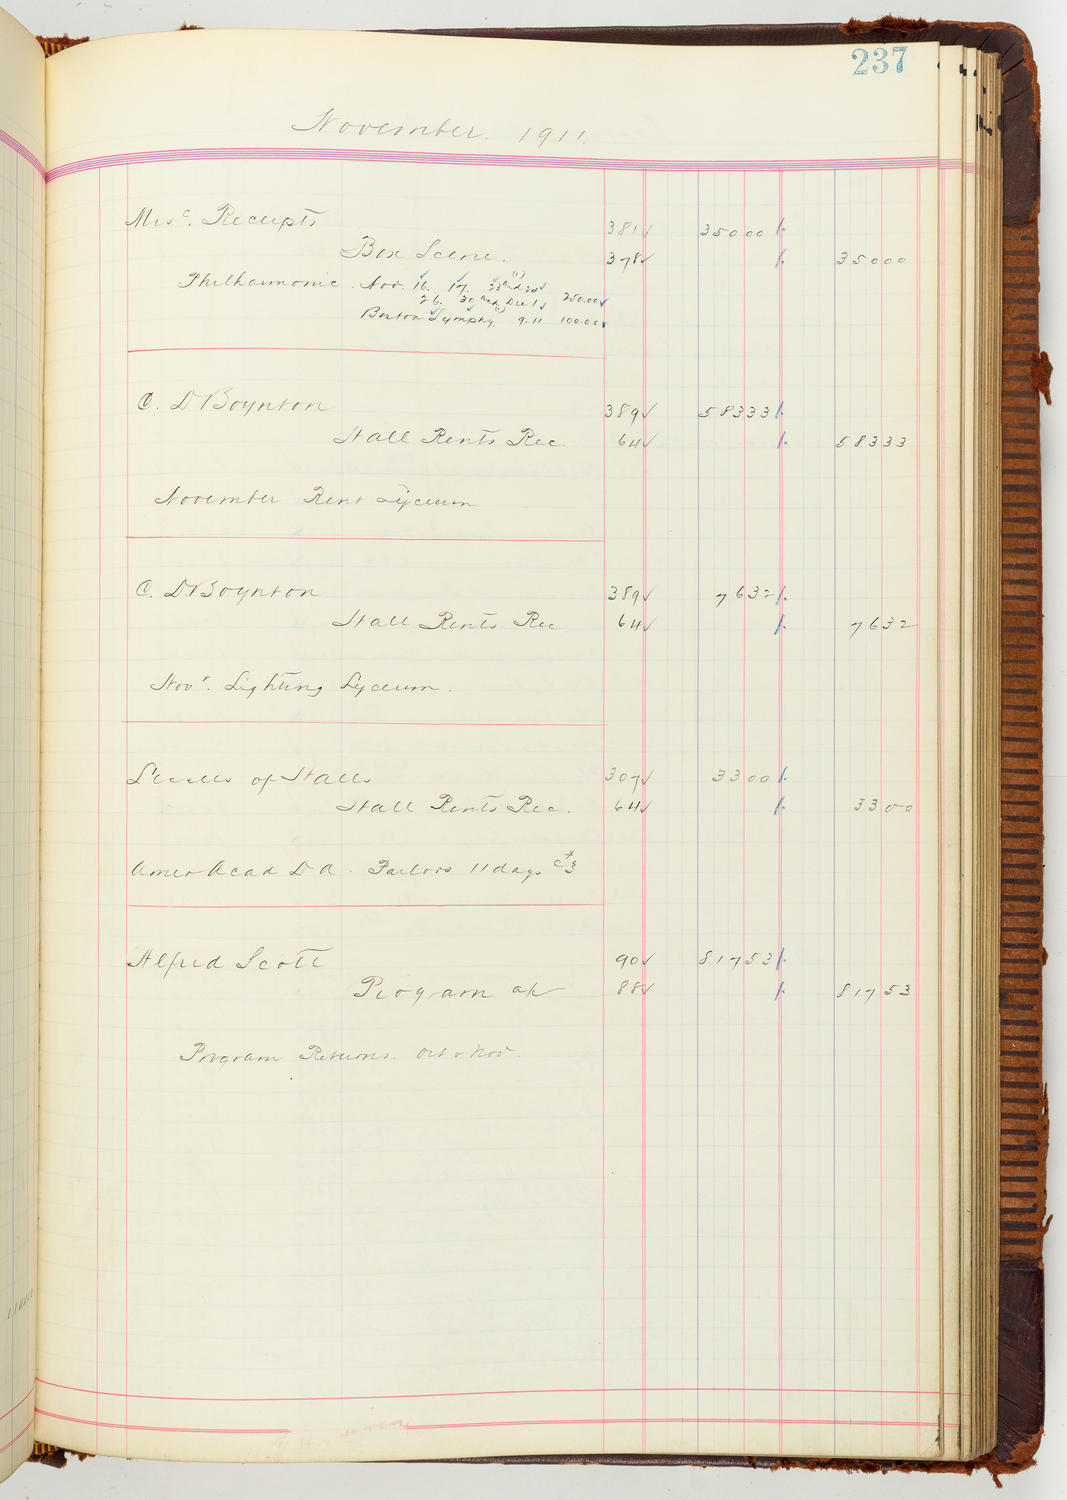 237
November. 1911.
Misc. Receipts 381✓ 35000
Box Scene. 378✓ 35000
Philharmonic. Nov. 16. 17. 23rd 24
26. 30 and Dec 1 250.00
Boston Symphy. 9. 11 100.00
C. D Boynton 389✓ 58333
Hall Rents Rec. 64✓ 58333
November Rent Lyceum
C. D. Boynton 389✓ 7632
Hall Rents Rec 64✓ 7632
Novr. Lighting Lyceum.
Lessees of Halls 307✓ 3300
Hall Rents Rec. 64✓ 3300
Amer Acad D A. Parlors 11 days @ 3
Alfred Scott 90✓ 81753
Program a/c 88✓ 81753
Program Returns. Oct & Nov.